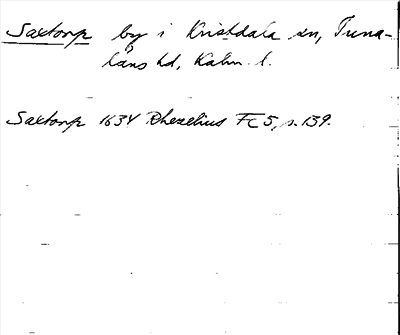 Saxtorp by i Kristdala sn, Tuna-
läns hd, Kalm. l.
Saxtorp 1634 Rhezelius Fc5, s. 139.